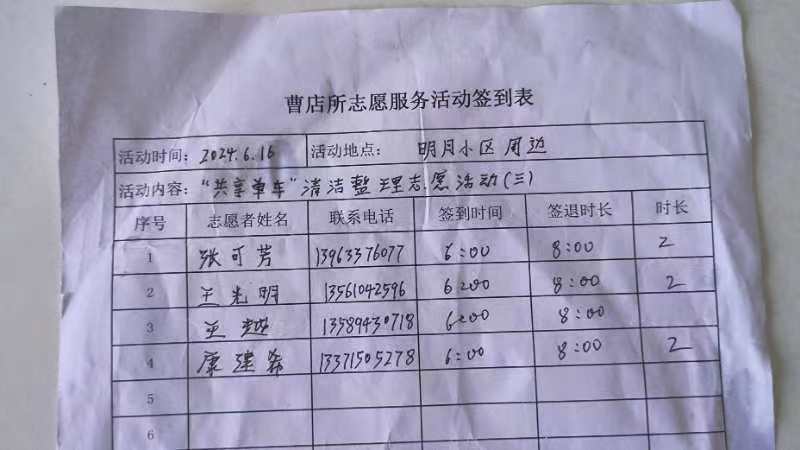 曹店所志愿服务活动签到表
活动时间: 2024.6.16 活动地点: 明月小区周边
活动内容: “共享单车”清洁整理志愿活动(三)
序号 志愿者姓名 联系电话 签到时间 签退时长 时长
1 张可芳 13963376077 6:00 8:00 2
2 王光明 13561042596 6:00 8:00 2
3 王越 13589430718 6:00 8:00
4 康建希 13371505278 6:00 8:00 2
5
6